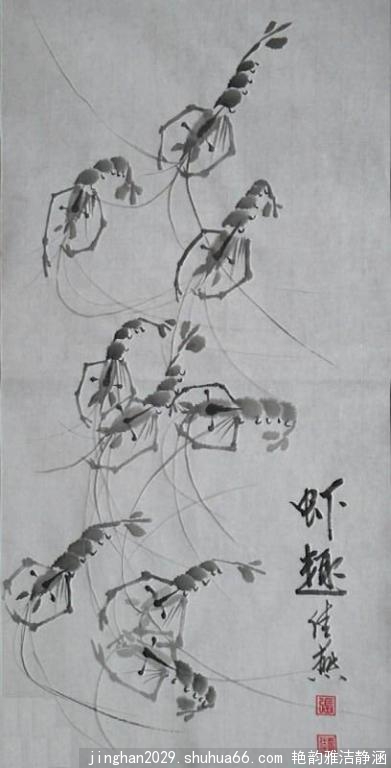 虾趣
佳燕
張
jinghan2029.shuhua66.com 艳韵雅洁静涵